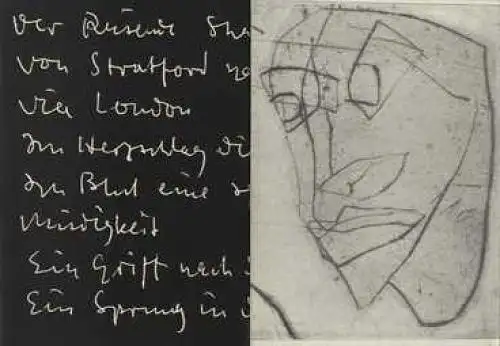 Der Reisende Sha
von Stratford na
via London
Im Herzschlag di
Im Blut eine s
Müdigkeit
Ein Griff nach
Ein Sprung in d